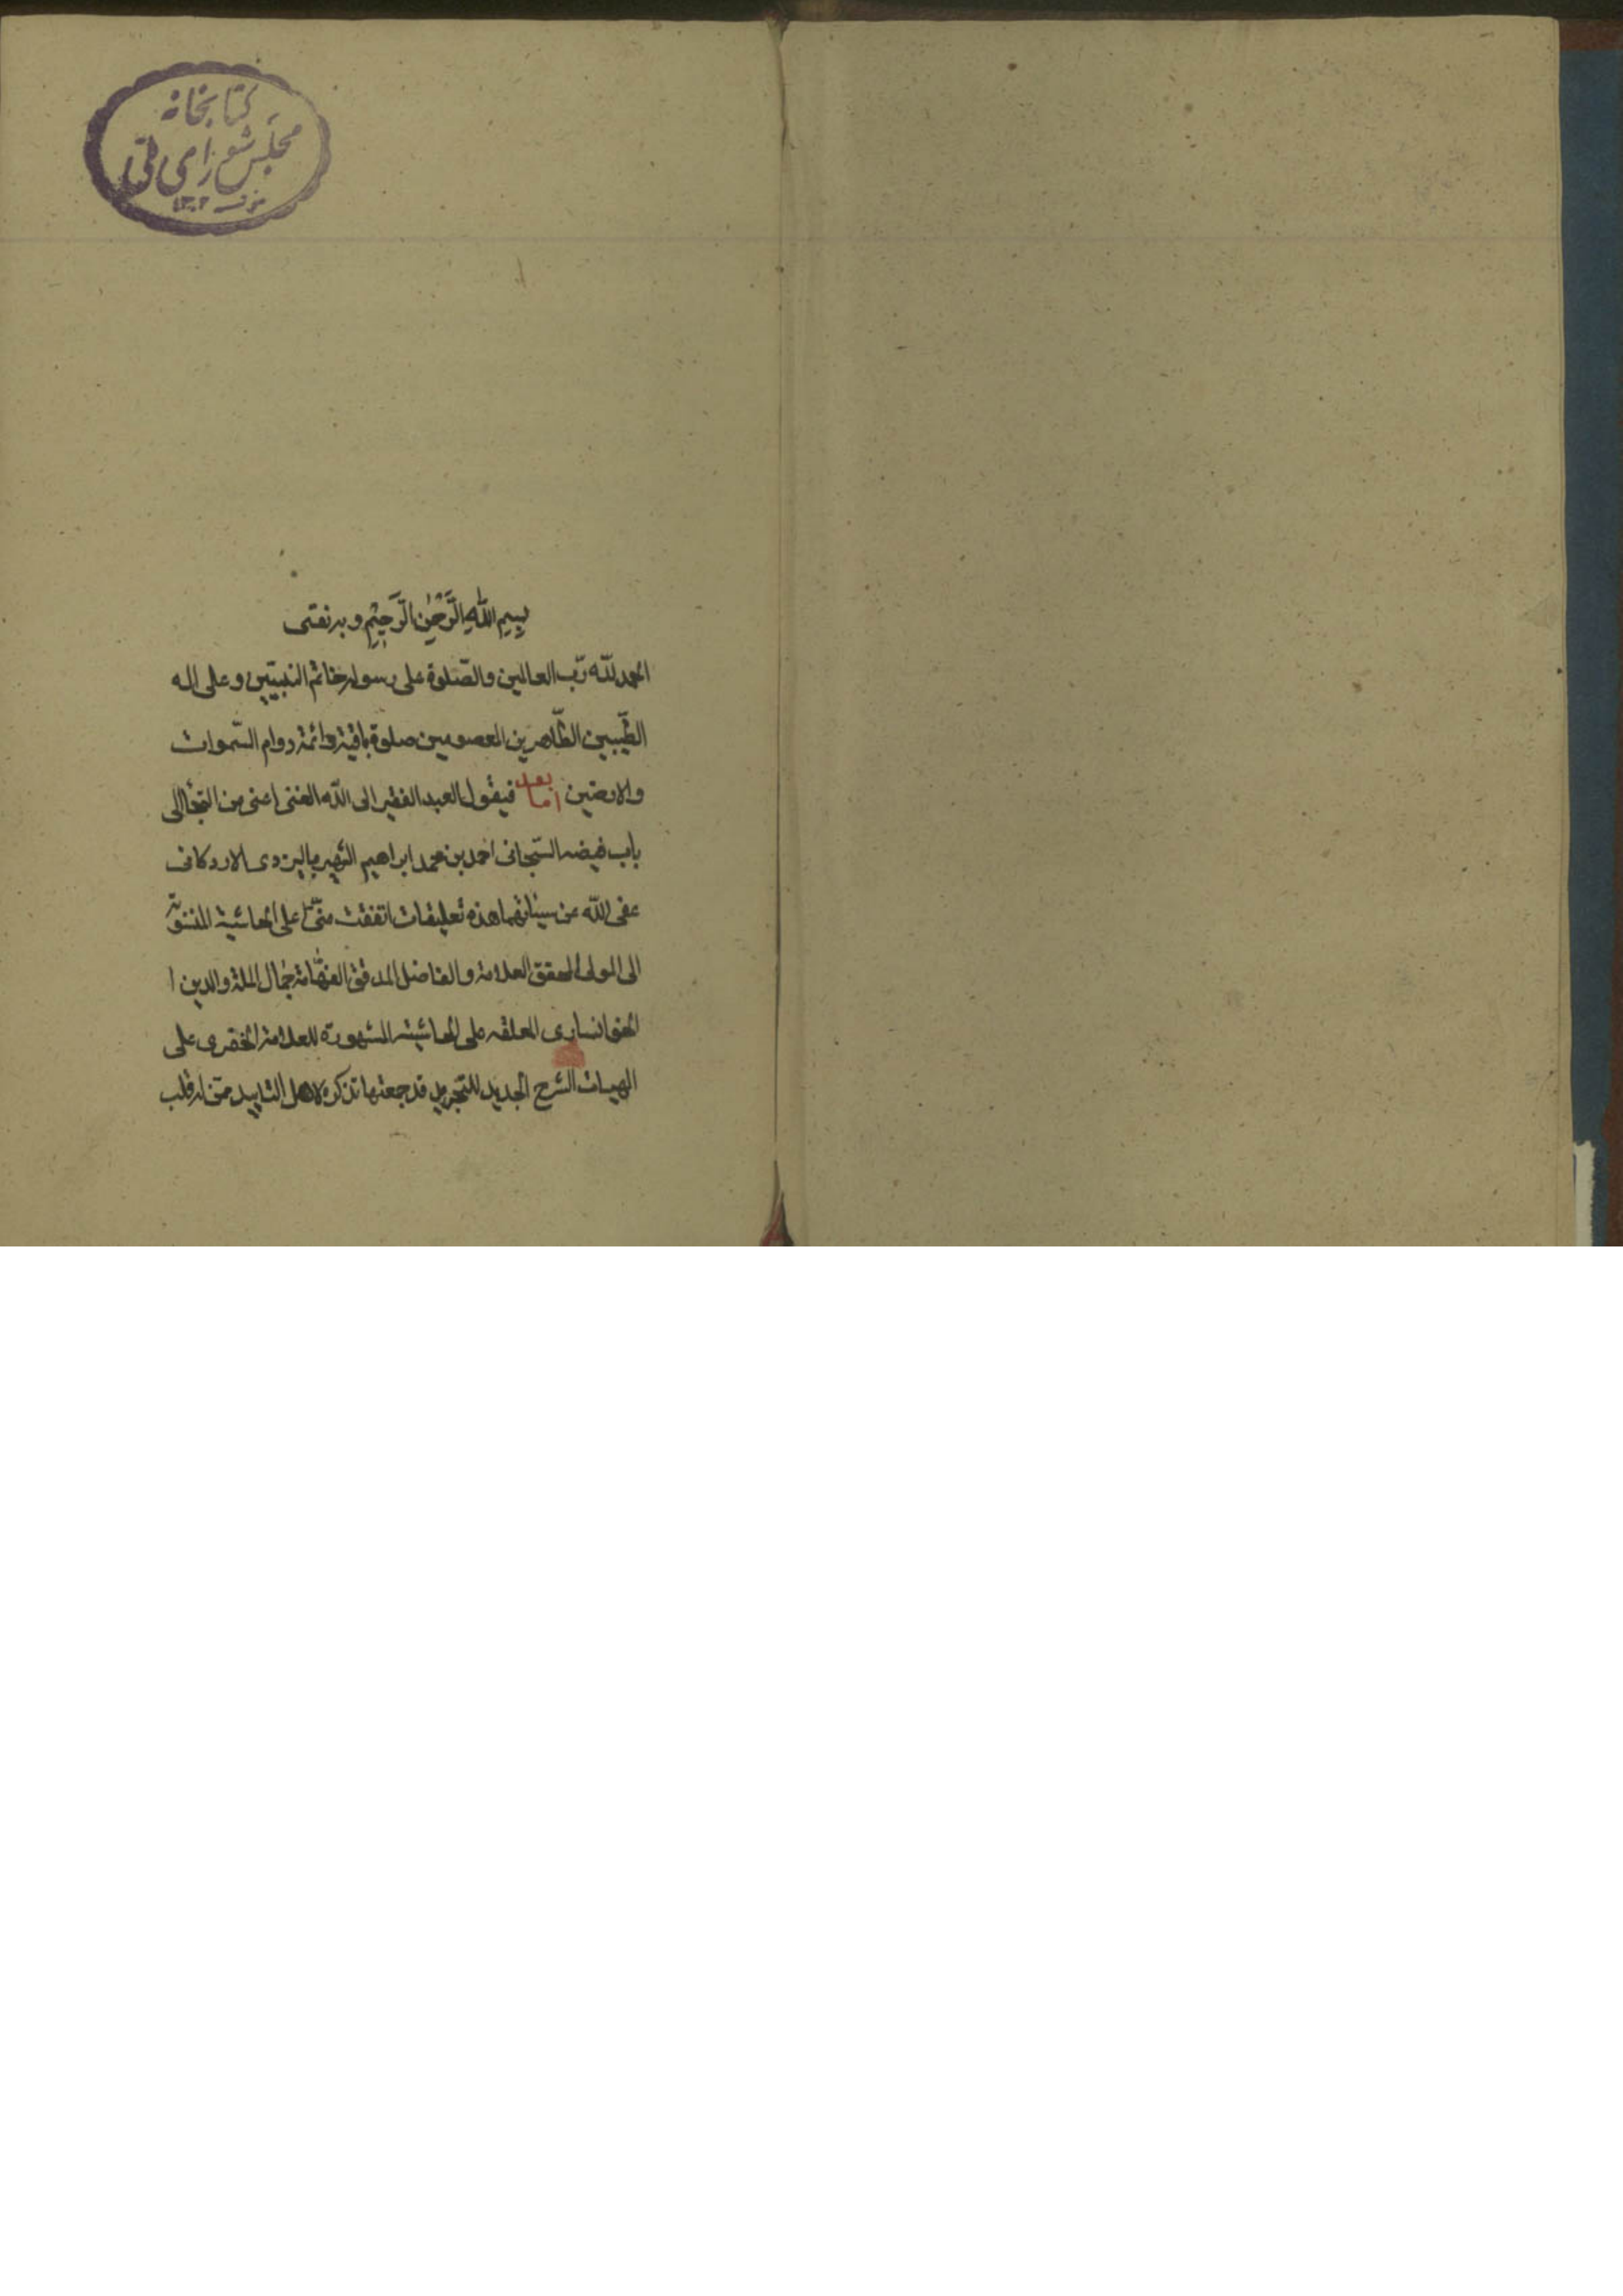 كتابخانه
مجلس شورای ملی
١٣٠٢
بِسِمِ اللّٰهِ الرَّحْمٰنِ الرَّحِيْمِ وبه ثقتى
الحمد للّه ربّ العالمين والصّلوة على رسوله خاتم النبيّين وعلى اله
الطّيبين الطّاهرين المعصومين صلوة باقية دائمة دوام السّموات
والارضين امّا بعد فيقول العبد الفقير الى اللّه الغنى اعنى من التجأ الى
باب فيضه السّبحانى احمد بن محمد ابراهيم الشهير باليزدى الاردكانى
عفى اللّه عن سيئاتهما هذه تعليقات اتفقت منّى على الحاشية المنسوبة
الى المولى المحقق العلامة والفاضل المدقق الفهّامة جمال الملة والدين ا
الخوانسارى المعلقه على الحاشية المشهورة للعلامة الخفرى على
الهيات الشرح الجديد للتجريد قد جعتها تذكرة لاهل التاييد ممّن له قلب